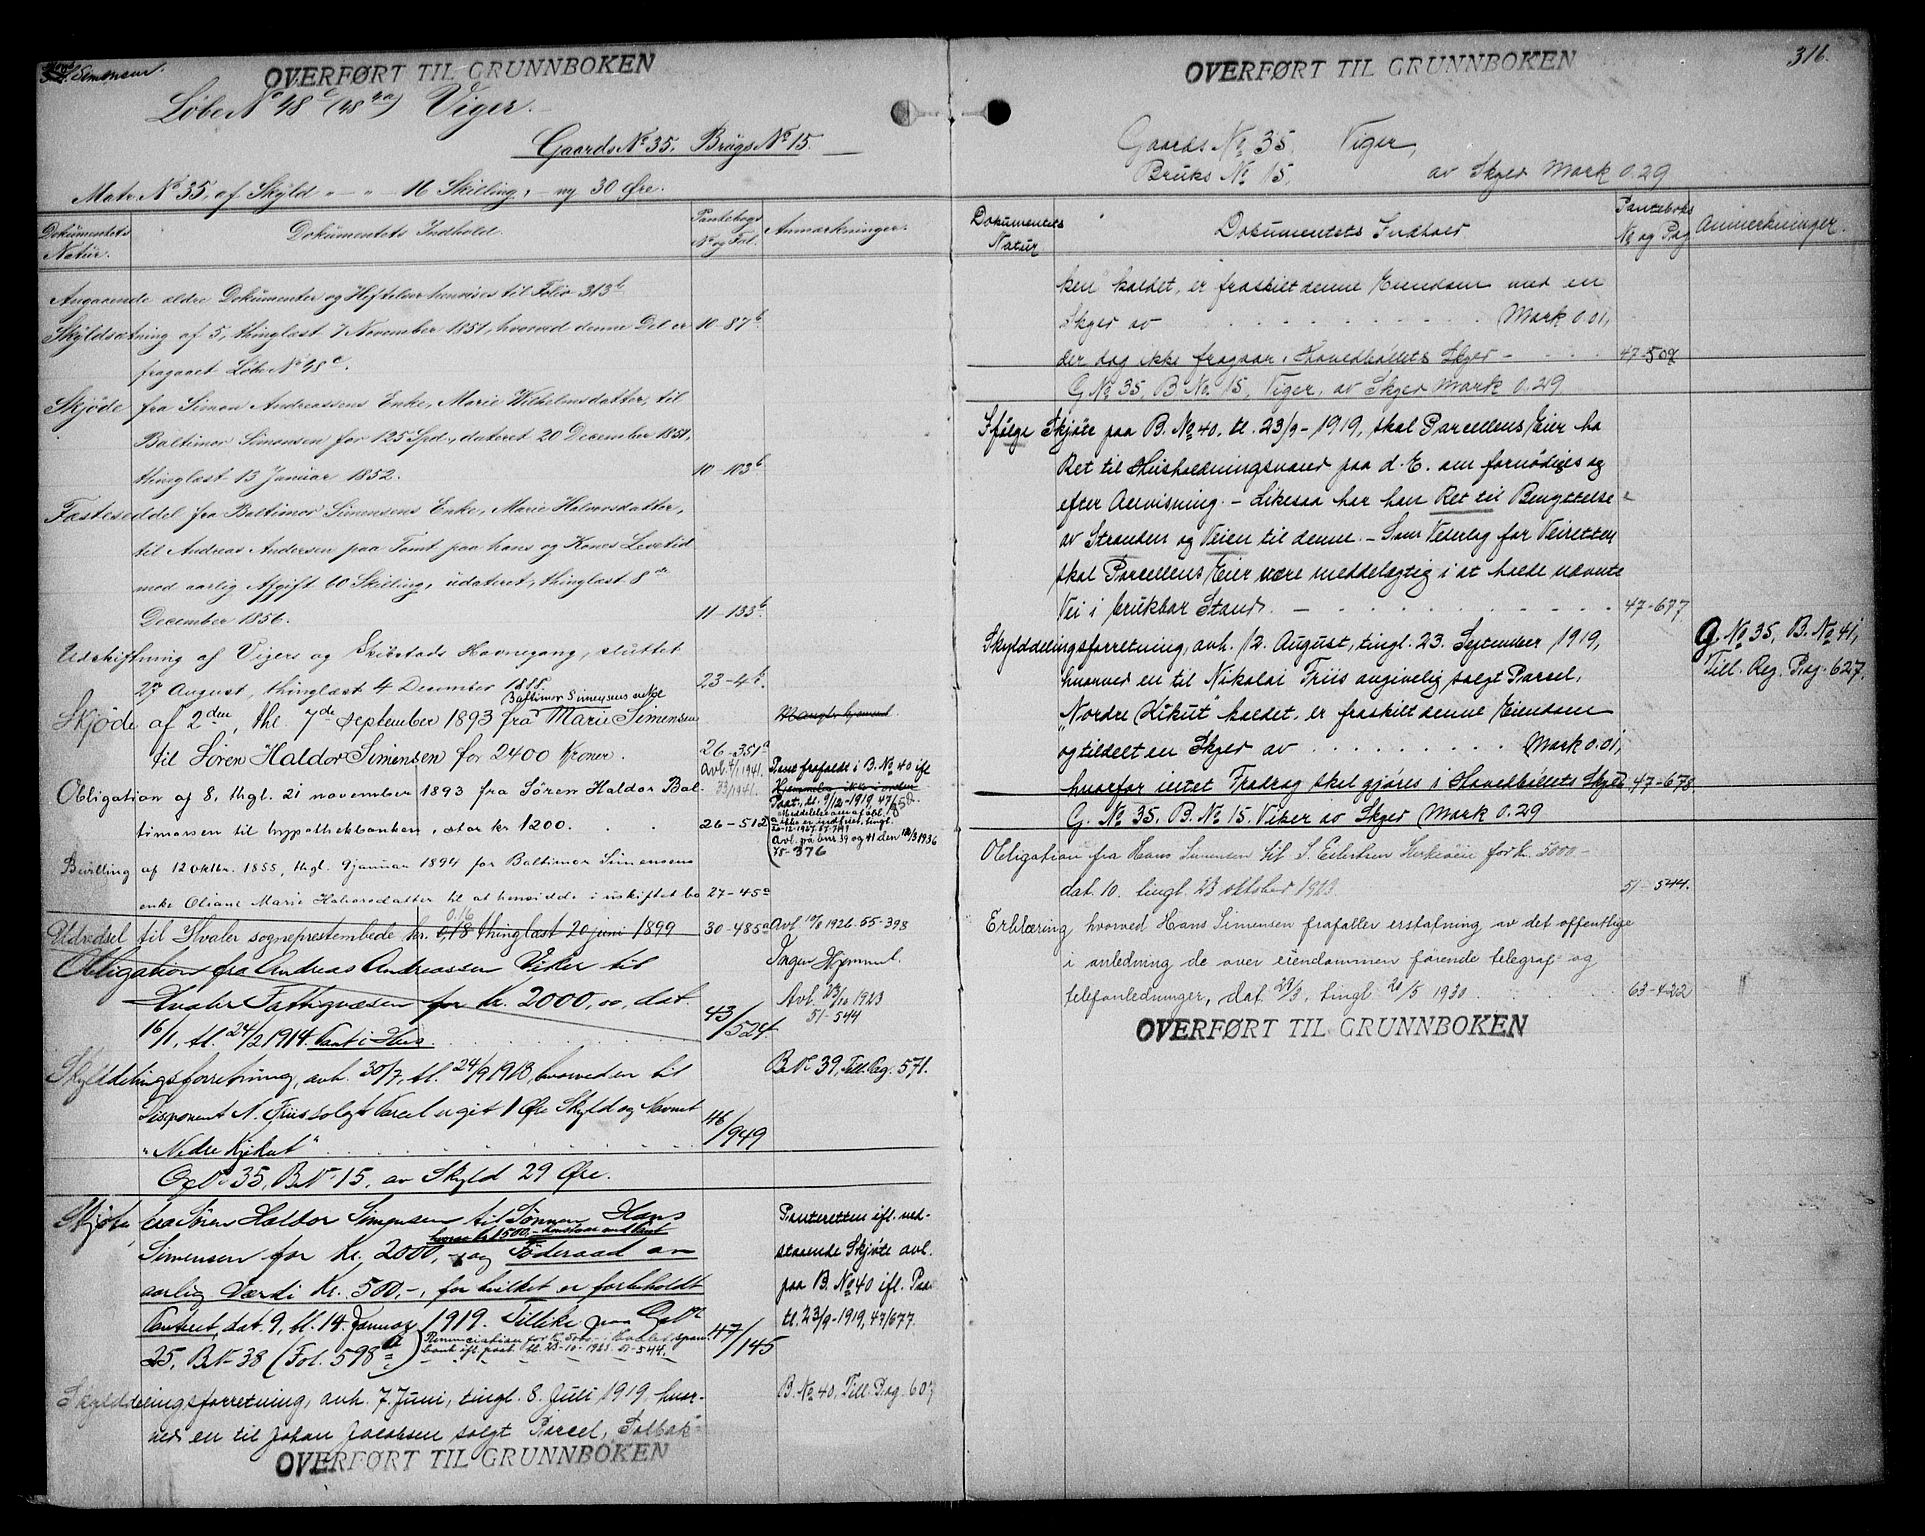 Hans
S. H. Simensen.
OVERFØRT TIL GRUNNBOKEN
Løbe No 48c (48 4a) Viger.
Gaards No 35, Brugs No 15.
Matr. No 35, af Skyld " - " - 16 Skilling, - ny 30 Øre.
Dokumentets Natur.
Dokumentets Indhold.
Pantebogs No og Fol.
Anmærkninger.
Angaaende ældre Dokumenter og Heftelser henvises til Folio 313b
Skyldsætning af 5, thinglæst 7 November 1851, hvorved denne Del er 10-87b.
fragaaet Løbe No 48c.
Skjøde fra Simon Andreassens Enke, Marie Wilhelmsdatter, til
Baltimor Simensen for 125 Spd., dateret 20 December 1851,
thinglæst 13 Januar 1852. 10-103b
Fæsteseddel fra Baltimor Simensens Enke, Marie Halvorsdatter,
til Andreas Andersen paa Tomt paa hans og Kones Levetid
mod aarlig Afgift 60 Skilling, udateret, thinglæst 8de
December 1856. 11-133b.
Udskiftning af Vigers og Skibstads Havnegang, sluttet
27 August, thinglæst 4 December 1888. 23-4b.
Baltimor Simensens enke
Skjøde af 2den, thl. 7de september 1893 fra Marie Simensen
til Søren Haldor Simensen for 2400 Kroner. 26-351a
Mangler hjemmel
Obligation af 8, thgl. 21 november 1893 fra Søren Haldor Bal-
timorsen til hypothekbanken, stor kr 1200. 26-512
Avl. 4/1 1941.
33/1941.
Pant frafaldt i B. No 40 ifl
Hjemmelen ikke i orden
Paat. tl. 9/12-1919, 47/
Meddelelse om af obl.
ikke er indfriet, tingl.
Avl. på bnr 39 og 41 den 12/3 1936
75-376
Bevilling af 12 oktbr. 1855, thgl. 9 januar 1894 for Baltimor Simensens
enke Oliane Marie Halvorsdatter til at hensidde i uskiftet bo 27-45a
0.16
Udvidsel til Hvaler sogneprestembede kr. 0,18 thinglæst 20 juni 1899 30-485a Avl 10/8 1926. 55-398
Obligation fra Andreas Andreassen Viker til
Hvaler Fattigvæsen for Kr. 2000,00, dat.
16/1, tl. 24/2 1914. Pant i Hus 43/524
Ingen Hjemmel.
Avl. 23/10 1923
51-544
Skylddelingsforretning, avh. 30/7, tl. 24/9 1918, hvorved en til
Disponent N. Friis solgt Parcel er git 1 Øre Skyld og Navnet
"Nedre Kjikut" 46/949
B No 39, Till. Pag. 571.
G No 35, B No 15, av Skyld 29 Øre.
Skjøte fra Søren Haldor Simensen til Sønnen Hans
hvorav Kr 1500,- henstaar mod Pant
Simensen for Kr. 2000,- og Føderaad av
aarlig Værdi Kr. 500,-, for hvilket er forbeholdt
Panteret, dat. 9, tl. 14. Januar 1919. Tillike paa G No
25, B No 38 (Fol. 598a) 47/145
Renunciation for Kr. 5000,- Hvaler spare-
bank ifl. paat. tl. 23-10-1923 51-544.
Panteretten ifl. ned-
staaende Skjøte avl.
paa B. No 40 ifl. Paat.
tl. 23/9-1919, 47/677.
Skylddelingsforretning, avh. 7 Juni, tingl. 8. Juli 1919, hvor-
ved en til Johan Jacobsen solgt Parcel, "Solbak-
B. No 40, Till. Pag. 607
OVERFØRT TIL GRUNNBOKEN
OVERFØRT TIL GRUNNBOKEN
316.
Gaards No 35. Viger,
Bruks No 15, av Skyld Mark 0.29
Dokumentets Natur
Dokumentets Indhold
Panteboks No og Pag
Anmerkninger.
ken" kaldet, er fraskilt denne Eiendom med en
Skyld av . . . . . . . . . . Mark 0.01,
der dog ikke fragaar i Hovedbøllets Skyld - - - - 47-508
G No 35, B. No 15, Viger, av Skyld Mark 0.29
Ifølge Skjøte paa B. No 40, tl. 23/9-1919, skal Parcellens Eier ha
Ret til Husholdningsvand paa d. E. om fornødiges og
efter Anvisning. - Likesaa har han Ret til Benyttelse
av Stranden og Veien til denne. - Som Vederlag for Veiretten
skal Parcellens Eier være meddelagtig i at holde nævnte
Vei i brukbar Stand. - - - - - - 47-677
Skylddelingsforretning, avh. 12. August, tingl. 23. September 1919,
hvorved en til Nikolai Friis angivelig solgt Parcel,
"Nordre Kikut" kaldet, er fraskilt denne Eiendom
og tildelt en Skyld av . . . . . . . . . Mark 0.01,
hvorfor intet Fradrag skal gjøres i Hovedbøllets Skyld 47-678
G. No 35, B. No 41,
Till. Reg. Pag. 627.
G. No 35, B. No 15. Viker av Skyld Mark 0.29
Obligation fra Hans Simensen til S. Eilertsen for kr. 5000-
dat. 10. tingl. 23 oktober 1923. 51-544.
Erklæring hvorved Hans Simensen frafaller erstatning av det offentlige
i anledning de over eiendommen førende telegraf- og
telefonledninger, dat. 29/3, tingl. 20/5 1930 63-422
OVERFØRT TIL GRUNNBOKEN